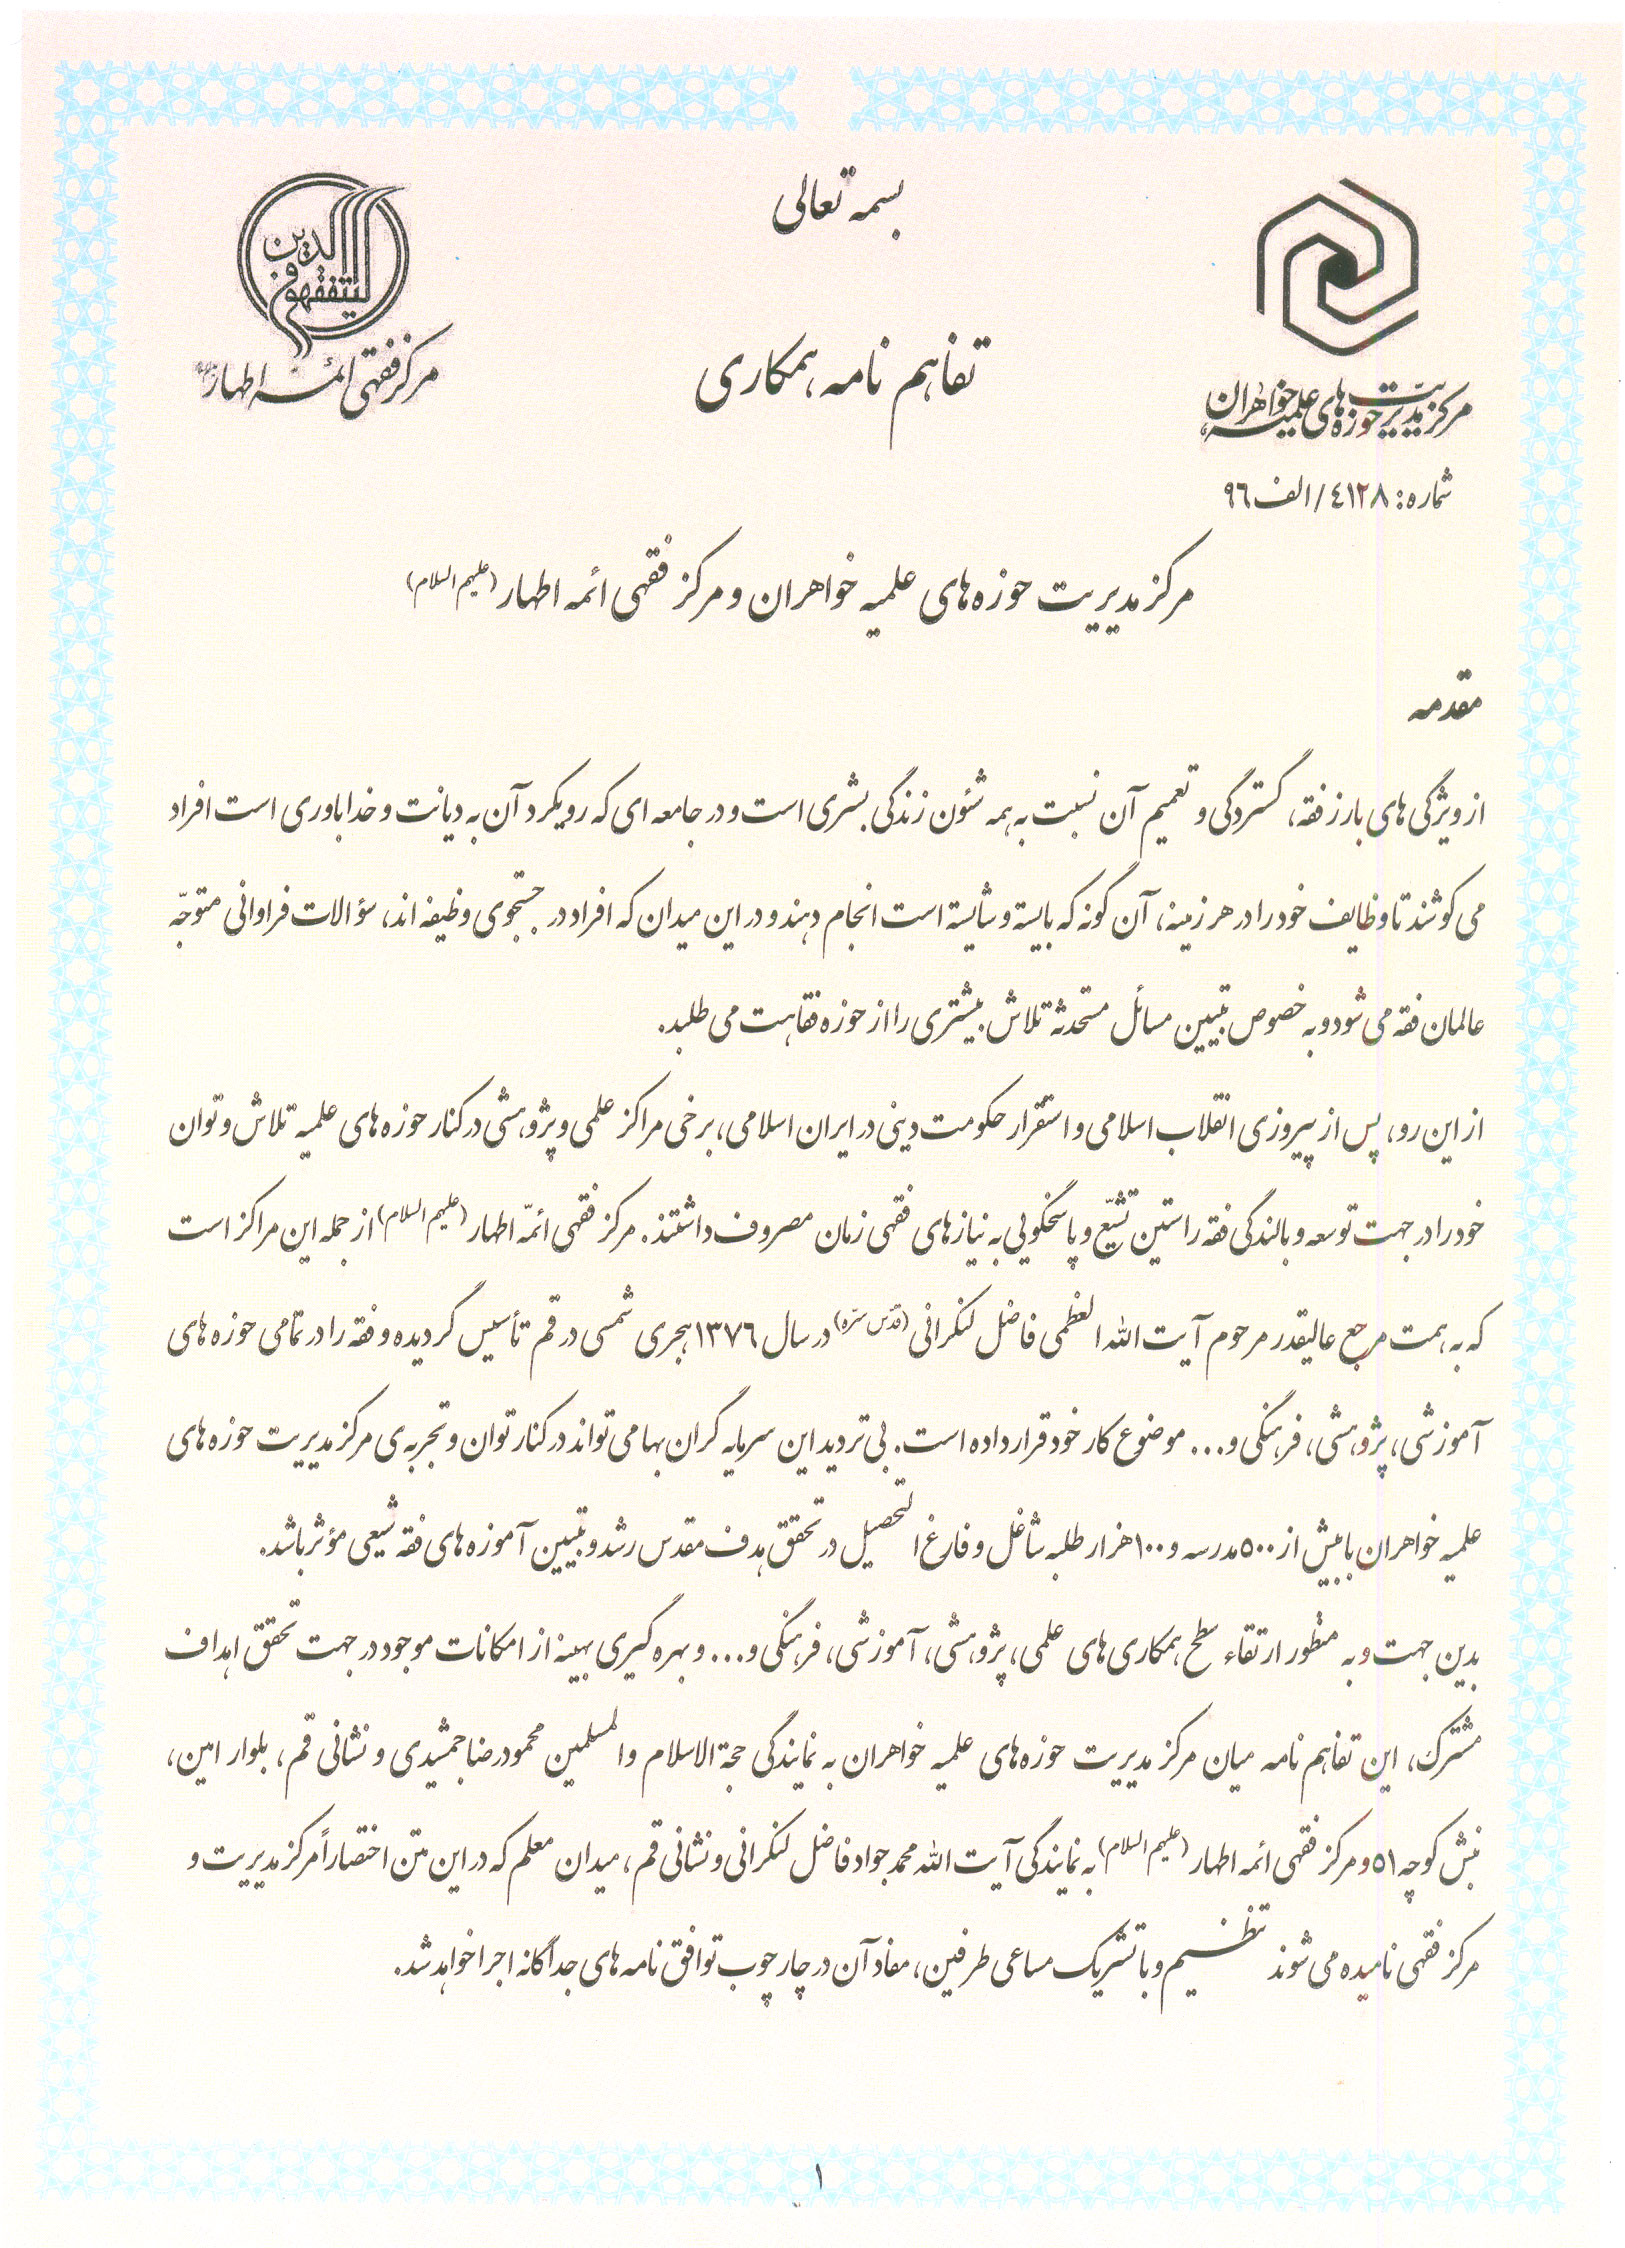 بسمه تعالی
لیتفقهوا فی الدین
مرکز فقهی ائمه اطهار
مرکز مدیریت حوزه‌های علمیه خواهران
تفاهم نامه همکاری
شماره: ٤١٢٨/الف٩٦
مرکز مدیریت حوزه های علمیه خواهران و مرکز فقهی ائمه اطهار (علیهم السلام)
مقدمه
از ویژگی های بارز فقه، گستردگی و تعمیم آن نسبت به همه شئون زندگی بشری است و در جامعه ای که رویکرد آن به دیانت و خداباوری است افراد
می کوشند تا وظایف خود را در هر زمینه، آن گونه که بایسته و شایسته است انجام دهند و در این میدان که افراد در جستجوی وظیفه اند، سؤالات فراوانی متوجّه
عالمان فقه می شود و به خصوص تبیین مسائل مستحدثه تلاش بیشتری را از حوزه فقاهت می طلبد.
از این رو، پس از پیروزی انقلاب اسلامی و استقرار حکومت دینی در ایران اسلامی، برخی مراکز علمی و پژوهشی در کنار حوزه های علمیه تلاش و توان
خود را در جهت توسعه و بالندگی فقه راستین تشیّع و پاسخگویی به نیازهای فقهی زمان مصروف داشتند. مرکز فقهی ائمّه اطهار (علیهم السلام) از جمله این مراکز است
که به همت مرجع عالیقدر مرحوم آیت الله العظمی فاضل لنکرانی (قدّس سرّه) در سال ١٣٧٦ هجری شمسی در قم تأسیس گردیده و فقه را در تمامی حوزه های
آموزشی، پژوهشی، فرهنگی و... موضوع کار خود قرار داده است. بی تردید این سرمایه گران بها می تواند در کنار توان و تجربه ی مرکز مدیریت حوزه های
علمیه خواهران با بیش از ٥٠٠ مدرسه و ١٠٠ هزار طلبه شاغل و فارغ التحصیل در تحقق هدف مقدس رشد و تبیین آموزه های فقه شیعی مؤثر باشد.
بدین جهت و به منظور ارتقاء سطح همکاری های علمی، پژوهشی، آموزشی، فرهنگی و... و بهره گیری بهینه از امکانات موجود در جهت تحقق اهداف
مشترک، این تفاهم نامه میان مرکز مدیریت حوزه های علمیه خواهران به نمایندگی حجة الاسلام والمسلمین محمودرضا جمشیدی و نشانی قم، بلوار امین،
نبش کوچه ٥١ و مرکز فقهی ائمه اطهار (علیهم السلام) به نمایندگی آیت الله محمد جواد فاضل لنکرانی و نشانی قم، میدان معلم که در این متن اختصاراً مرکز مدیریت و
مرکز فقهی نامیده می شوند تنظیم و با تشریک مساعی طرفین، مفاد آن در چارچوب توافق نامه های جداگانه اجرا خواهد شد.
١